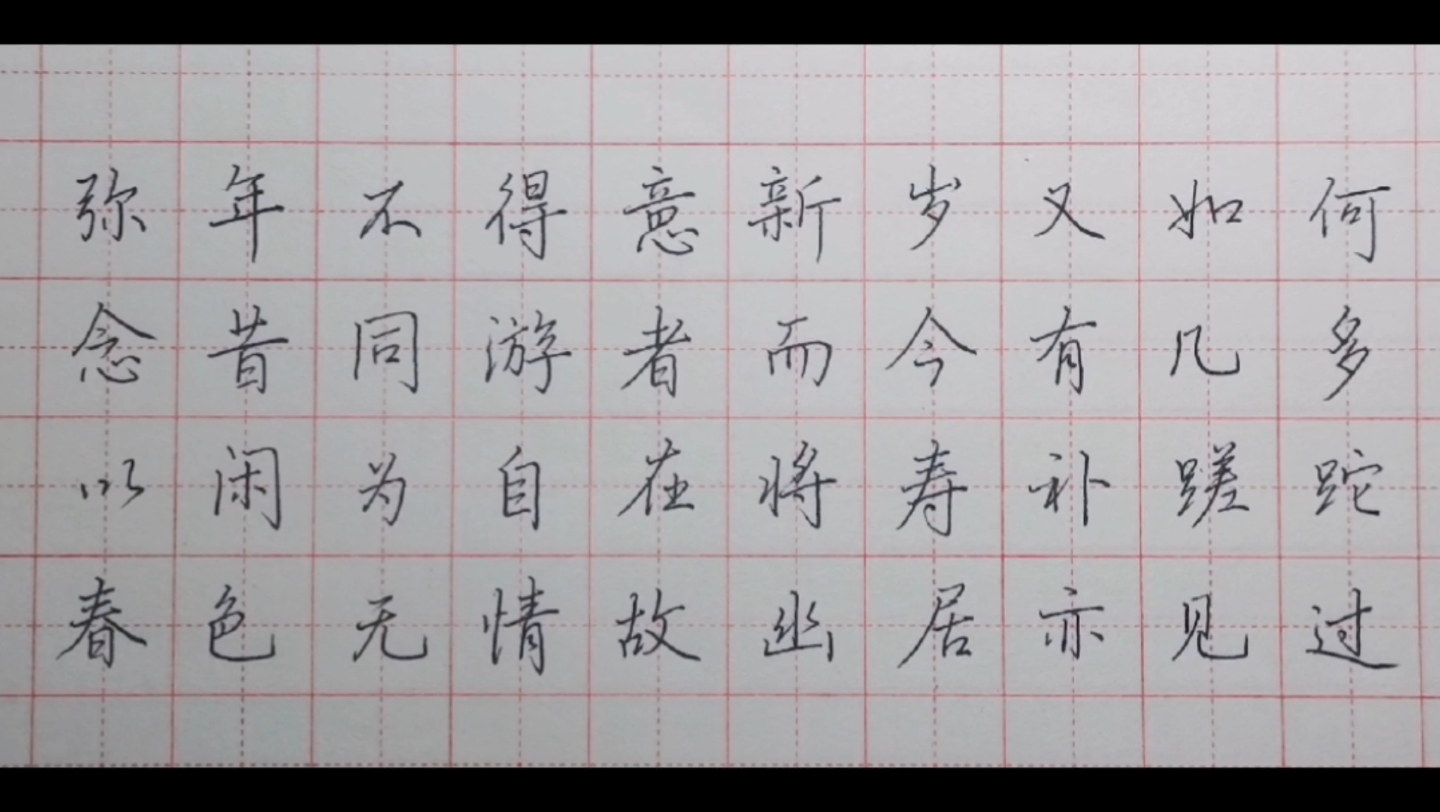 弥年不得意新岁又如何
念昔同游者而今有几多
以闲为自在将寿补蹉跎
春色无情故幽居亦见过